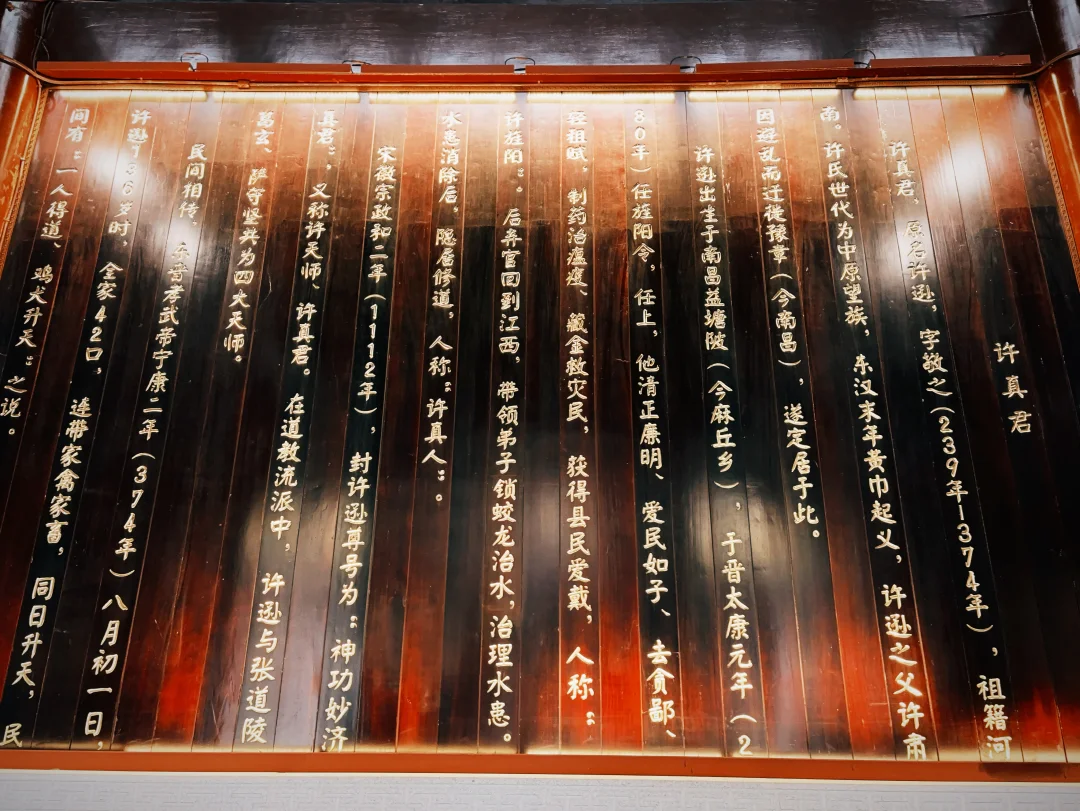 许真君
许真君，原名许逊，字敬之（239年—374年），祖籍河
南。许氏世代为中原望族，东汉末年黄巾起义，许逊之父许肃
因避乱而迁徙豫章（今南昌），遂定居于此。
许逊出生于南昌益塘陂（今麻丘乡），于晋太康元年（2
80年）任旌阳令，任上，他清正廉明、爱民如子、去贪鄙、
轻租赋，制药治瘟疫、藏金救灾民，获得县民爱戴，人称：
许旌阳：。后弃官回到江西，带领弟子锁蛟龙治水，治理水患。
水患消除后，隐居修道，人称：许真人：。
宋徽宗政和二年（1112年），封许逊尊号为：神功妙济
真君：，又称许天师、许真君。在道教流派中，许逊与张道陵
葛玄、萨守坚共为四大天师。
民间相传，东晋孝武帝宁康二年（374年）八月初一日，
许逊136岁时，全家42口，连带家禽家畜，同日升天，民
间有：一人得道、鸡犬升天：之说。